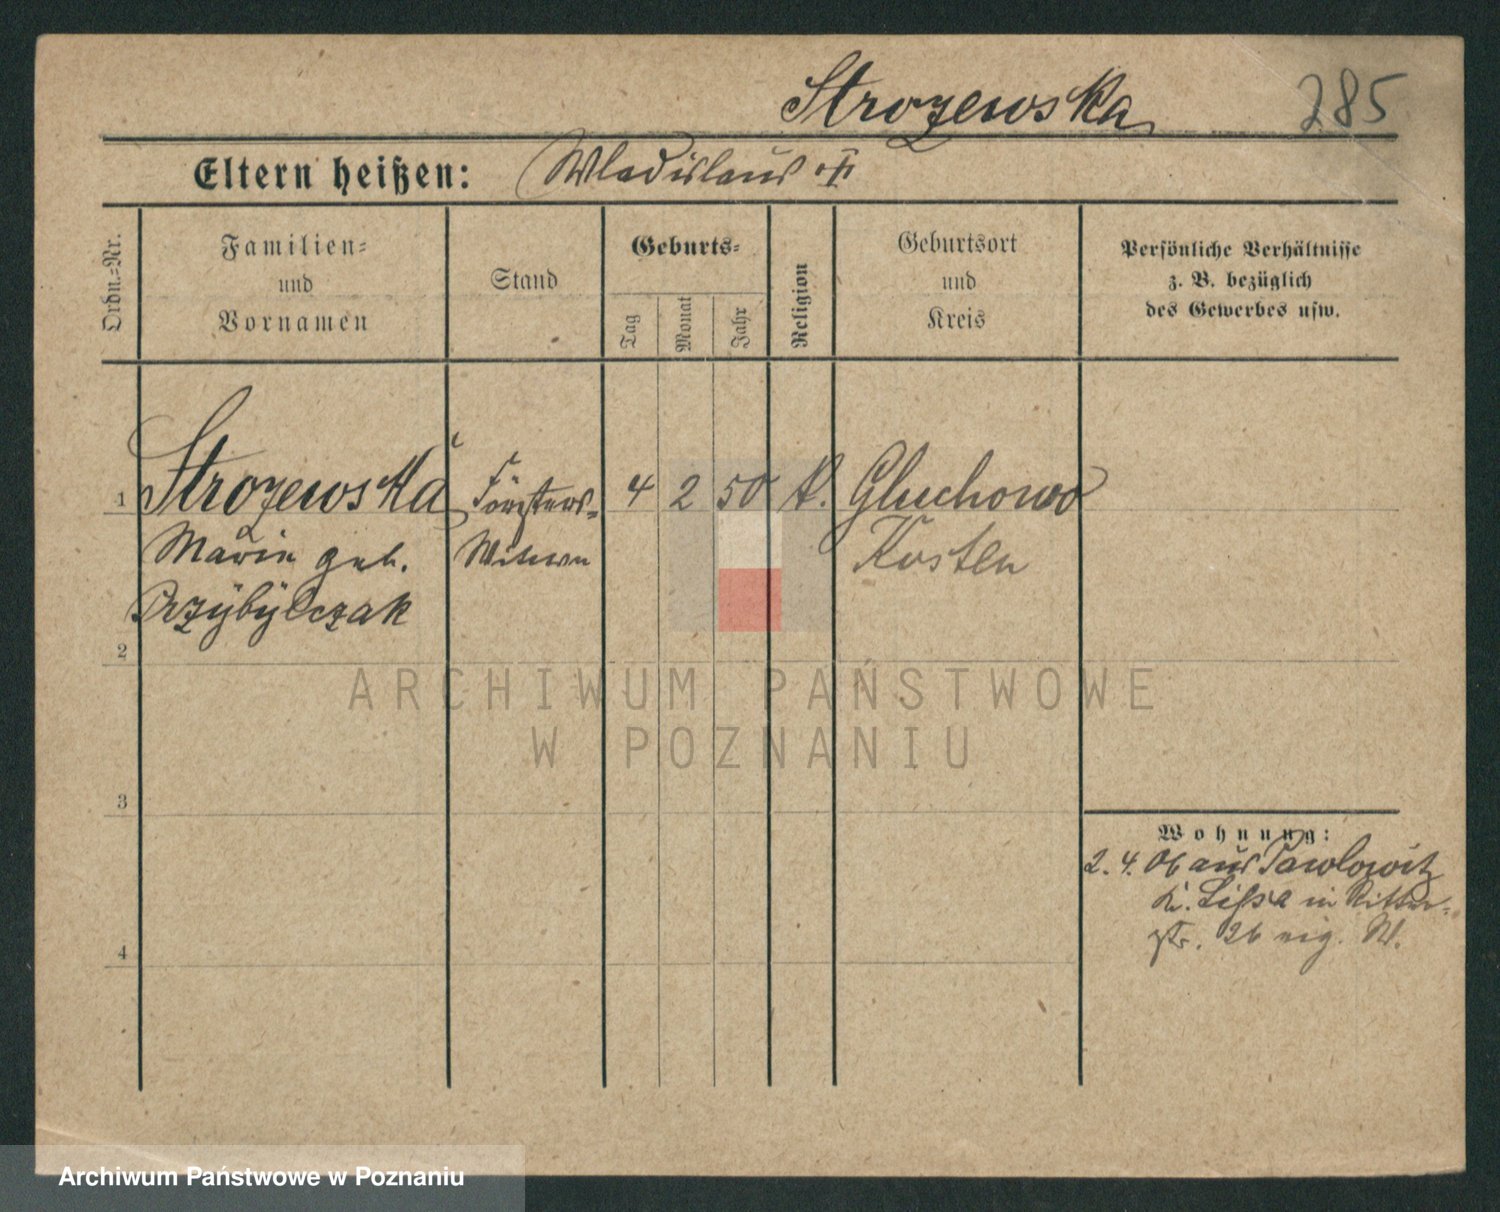 Strozewska 285
Eltern heißen: Wladislaus
Ordn.=Nr.
Familien=
und
Vornamen
Stand
Geburts=
Tag
Monat
Jahr
Religion
Geburtsort
und
Kreis
Persönliche Verhältnisse
z. B. bezüglich
des Gewerbes usw.
1 Strozewska Försters= 4 2 50 k. Gluchowo
Marie geb. Witwe Kosten
Przybylczak
2
3
4
Wohnung:
2. 4. 06 aus Pawlowitz
Kr. Lissa in Ritter=
str. 26 eig. W.
ARCHIWUM PAŃSTWOWE
W POZNANIU
Archiwum Państwowe w Poznaniu